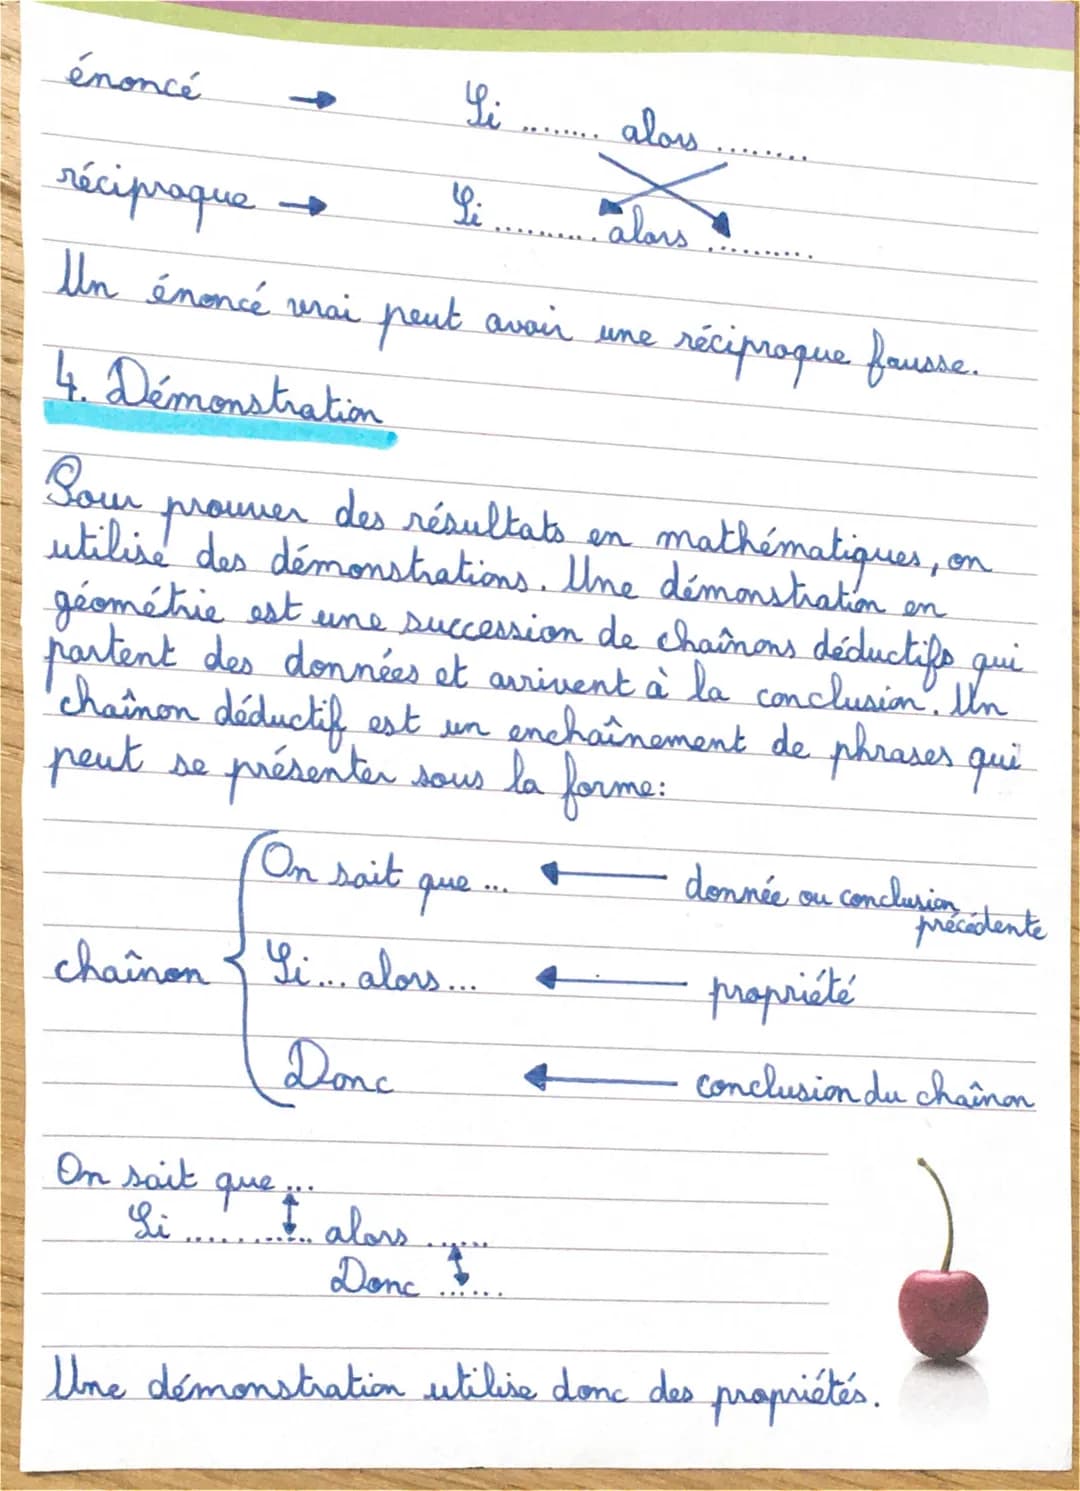 énoncé → Si ........ alors ........
réciproque → Si .......... alors ..........
Un énoncé vrai peut avoir une réciproque fausse.
4. Démonstration
Pour prouver des résultats en mathématiques, on
utilise des démonstrations. Une démonstration en
géométrie est une succession de chaînons déductifs qui
partent des données et arrivent à la conclusion. Un
chaînon déductif est un enchaînement de phrases qui
peut se présenter sous la forme:
On sait que ... ← donnée ou conclusion
précédente
chaînon { Si... alors... ← propriété
Donc ← conclusion du chaînon
On sait que ...
Si ............ alors ......
Donc ......
Une démonstration utilise donc des propriétés.